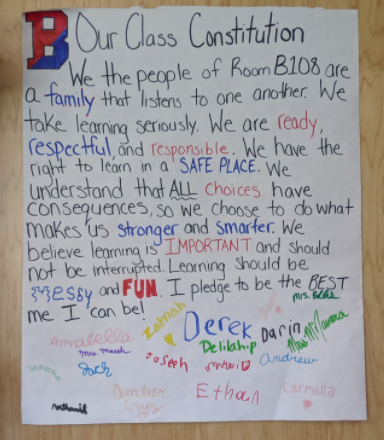 B Our Class Constitution
We the people of Room B108 are
a family that listens to one another. We
take learning seriously. We are ready,
respectful, and responsible. We have the
right to learn in a SAFE PLACE. We
understand that ALL choices have
consequences, so we choose to do what
makes us stronger and smarter. We
believe learning is IMPORTANT and should
not be interrupted. Learning should be
and FUN. I pledge to be the BEST
me I can be!
Zarriah Derek Darin
Annabella Delilah
Joseph Andrew
Jack
Amber Ethan Carmella
Cruz
nathaniel